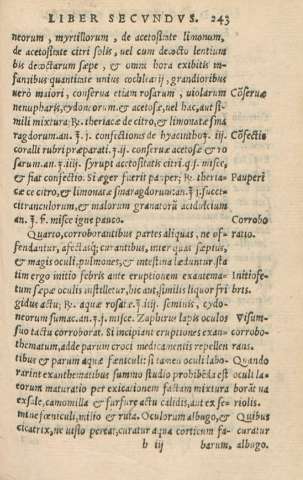 LIBER SECVNDVS. 243
neorum, myrtillorum, de acetositate limonum,
de acetositate citri solis, vel cum decocto lentium
bis decoctarum sæpe, & omni hora exhibitis in-
fantibus quantitate unius cochlearij, grandioribus
verò maiori, conserua etiam rosarum, uiolarum Cõseruæ
nenupharis, cydoneorum, & acetosæ, uel hac, aut si-
mili mixtura. ℞. theriacæ de citro, & limonatæ sma
ragdorum. an. ℥. j. confectionis de hyacinthog. iij. Cõfectio
coralli rubri præparati. ℥. iij. conseruæ acetosæ & ro
sarum. an. ℥. iiij. syrupi acetositatis citri q. s. misce,
& fiat confectio. Si æger fuerit pauper; ℞. theria- Pauperi
cæ ce citro, & limonatæ smaragdorum. an. ℥. j. succi-
citranculorum, & malorum granatorũ acidulcium
an. ℥. ß. misce igne pauco. Corrobo
Quarto, corroborantibus partes aliquas, ne of- ratio.
fendantur, afectasq; curantibus, inter quas sæptus,
& magis oculi, pulmones, & intestina læduntur. sta
tim ergo initio febris ante eruptionem exantema- Initio fe-
tum sæpe oculis instilletur, hic aut similis liquor fri bris.
gidus actu; ℞. aquæ rosar. ℥. iiij. seminis, cydo-
neorum sumac. an. ℥. misce. Zaphirus lapis oculos Visum-
suo tactu corroborat. Si incipiant eruptiones exan- corrobo-
thematum, adde parum croci medicamentis repellen rans.
tibus & parum aquæ fœniculi: si tamen oculi labo- Quando
rarint exanthematibus summo studio prohibēda est oculi la-
eorum maturatio per exicationem factam mixtura borãt ua
ex sale, camomilla & furfure actu calidis, aut ex se- riolis.
mine fœniculi, milio & ruta. Oculorum albugo, & Quibus
cicatrix, ne uisio pereat, curatur aqua corticum fa- curatur
h iij barum, albugo.